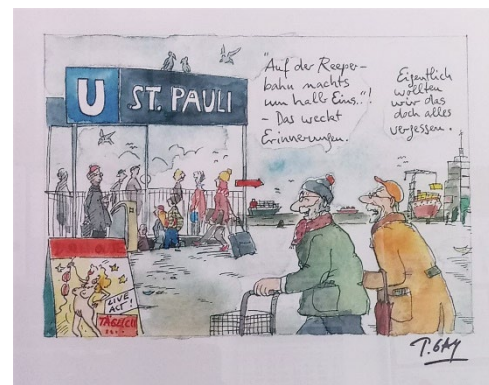 U ST. PAULI
"Auf der Reeper-
bahn nachts
um halb Eins.."!
- Das weckt
Erinnerungen.
Eigentlich
wollten
wir das
doch alles
vergessen.
LIVE
ACT
TÄGLICH
P. GAY